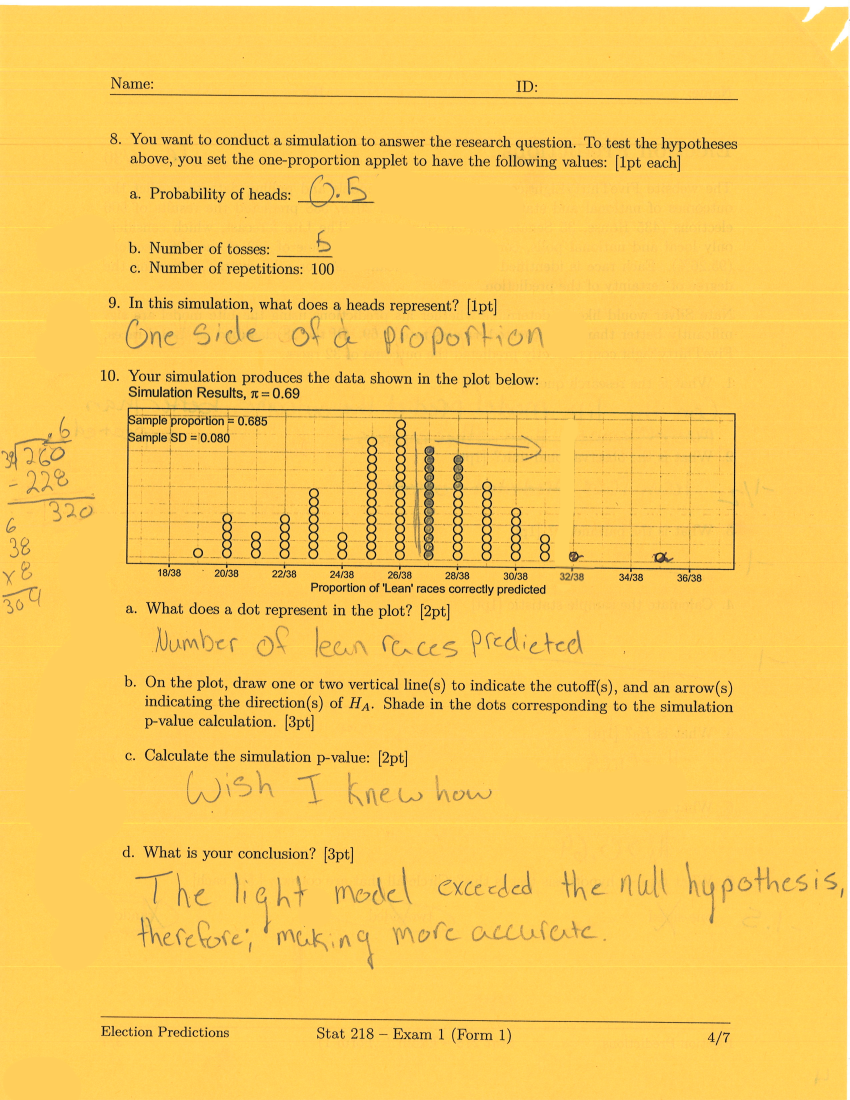 Name:
ID:
8. You want to conduct a simulation to answer the research question. To test the hypotheses
above, you set the one-proportion applet to have the following values: [1pt each]
a. Probability of heads: 0.5
b. Number of tosses: 5
c. Number of repetitions: 100
9. In this simulation, what does a heads represent? [1pt]
One side of a proportion
10. Your simulation produces the data shown in the plot below:
Simulation Results, π = 0.69
Sample proportion = 0.685
Sample SD = 0.080
18/38 20/38 22/38 24/38 26/38 28/38 30/38 32/38 34/38 36/38
Proportion of 'Lean' races correctly predicted
.6
38 260
- 228
320
6
38
x 8
304
a. What does a dot represent in the plot? [2pt]
Number of lean races predicted
b. On the plot, draw one or two vertical line(s) to indicate the cutoff(s), and an arrow(s)
indicating the direction(s) of H_A. Shade in the dots corresponding to the simulation
p-value calculation. [3pt]
c. Calculate the simulation p-value: [2pt]
Wish I knew how
d. What is your conclusion? [3pt]
The light model exceeded the null hypothesis,
therefore; making more accurate.
Election Predictions
Stat 218 – Exam 1 (Form 1)
4/7